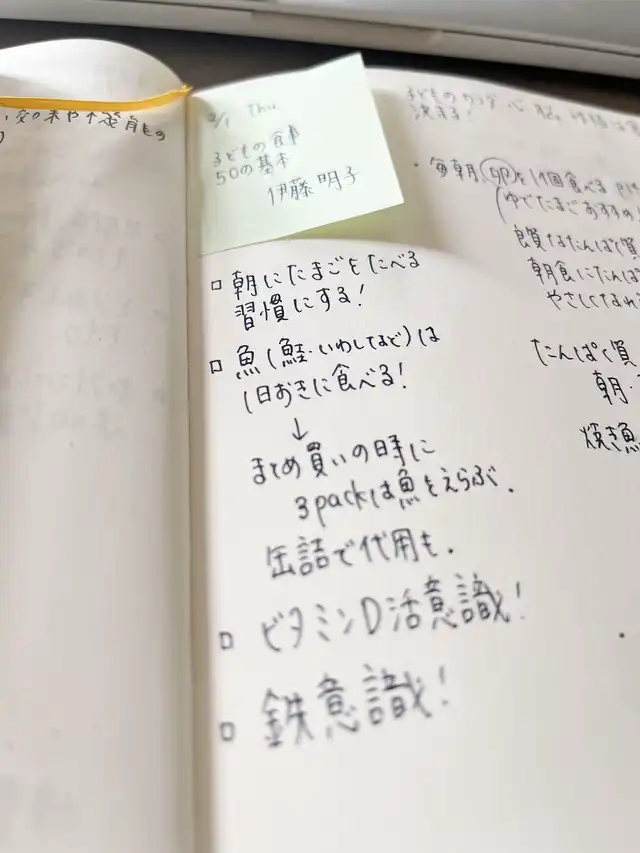 2/1 Thu
子どもの食事
50の基本
伊藤明子
□ 朝にたまごをたべる
習慣にする!
□ 魚(鮭・いわしなど)は
1日おきに食べる!
↓
まとめ買いの時に
3packは魚をえらぶ.
缶詰で代用も.
□ ビタミンD活意識!
□ 鉄意識!
子どもの
決まる!
・毎朝卵を1個食べる
(ゆでたまごおすすめ
良質なたんぱく質
朝食にたんぱ
やさしくなれ
たんぱく質
朝・
焼き魚